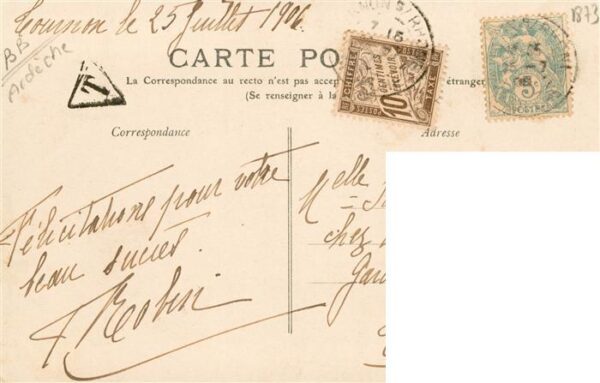 Tournon le 25 Juillet 1906
1873
BB
Ardèche
T
CARTE PO
La Correspondance au recto n'est pas accep étranger
(Se renseigner à la
CHIFFRE TAXE
10 CENTIMES À PERCEVOIR
POSTES
5
Correspondance
Adresse
Félicitations pour votre
beau succès.
Robin
Melle
chez